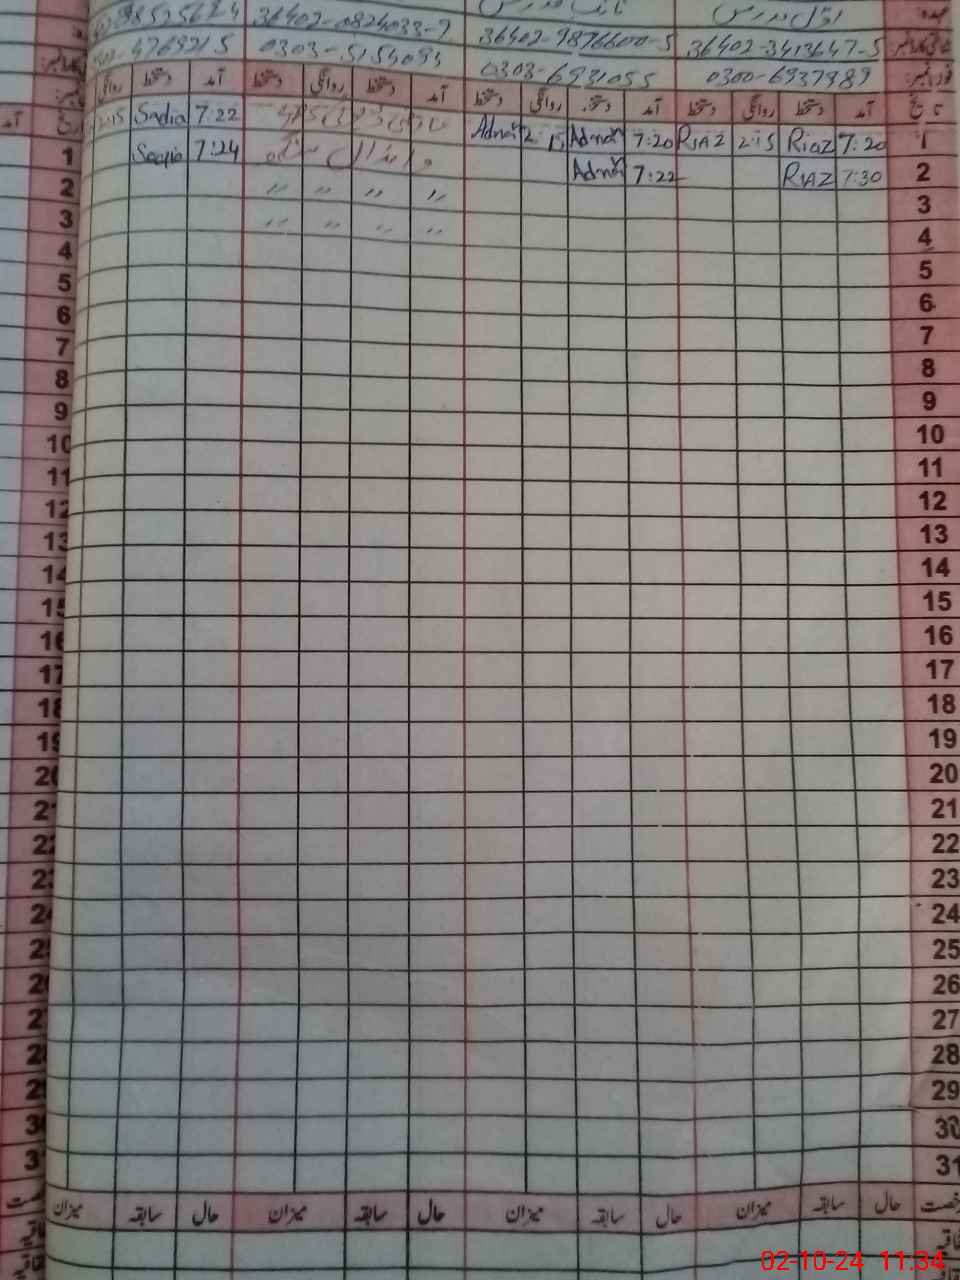 عہدہ: اوّل مدرس نائب مدرس
36402-3413647-5 36402-9876600-5 36402-0824033-9
فون نمبر: 0300-6937989 0303-6931055 0303-5154094 4769215
تاریخ آمد دستخط روانگی دستخط آمد دستخط روانگی دستخط آمد دستخط روانگی دستخط آمد دستخط روانگی
1 7:20 Riaz 2:15 RIAZ 7:20 Adnan 2:15 Adnan 7:22 Sadia 2:15
2 7:30 RIAZ 7:22 Adnan 7:24 Saadia
3 〃 〃 〃 〃
4 〃 〃 〃 〃
5
6
7
8
9
10
11
12
13
14
15
16
17
18
19
20
21
22
23
24
25
26
27
28
29
30
31
رخصت حال سابقہ میزان حال سابقہ میزان حال سابقہ میزان حال سابقہ میزان
02-10-24 11:34